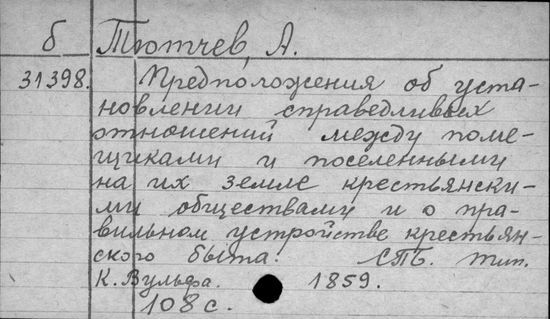 б Тютчев, А.
31398. Предположения об уста-
новлении справедливых
отношений между поме-
щиками и поселенными
на их земле крестьянски-
ми обществами и о пра-
вильном устройстве крестьян-
ского быта. СПБ. тип.
К. Вульфа. 1859.
108 с.